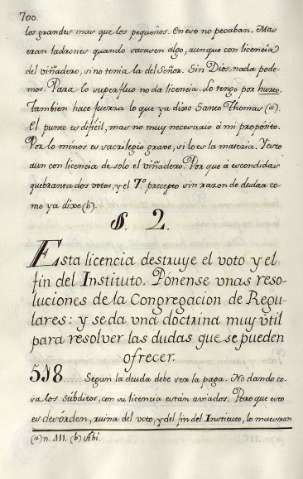 700.
los grandes mas que los pequeños. En eso no pecaban. Mas
eran ladrones quando sacasen algo, aunque con licencia
del viñadero, si no tenia la del Señor. Sin Dios nada pode-
mos. Para lo superfluo no da licencia. Lo tengo por hurto.
Tambien hace fuerza lo que ya dixo Santo Thomas (a).
El punto es dificil, mas no muy necesario á mi proposito.
Por lo menos es sacrilegio grave, si lo es la materia. Y esto
aun con licencia de solo el viñadero. Por que á escondidas
quebranta dos votos, y el 7.º precepto sin razon de dudar co-
mo ya dixe (b).
§. 2.
Esta licencia destruye el voto y el
fin del Instituto. Ponense unas reso-
luciones de la Congregacion de Regu-
lares: y se da una doctrina muy util
para resolver las dudas que se pueden
ofrecer.
518 .... Segun la deuda debe ser la paga. No dando co-
sa los subditos, con su licencia estan aviados. Para que esto
es desórden, ruina del voto, y del fin del Instituto, lo
(a) n. 311. (b) Ibi.